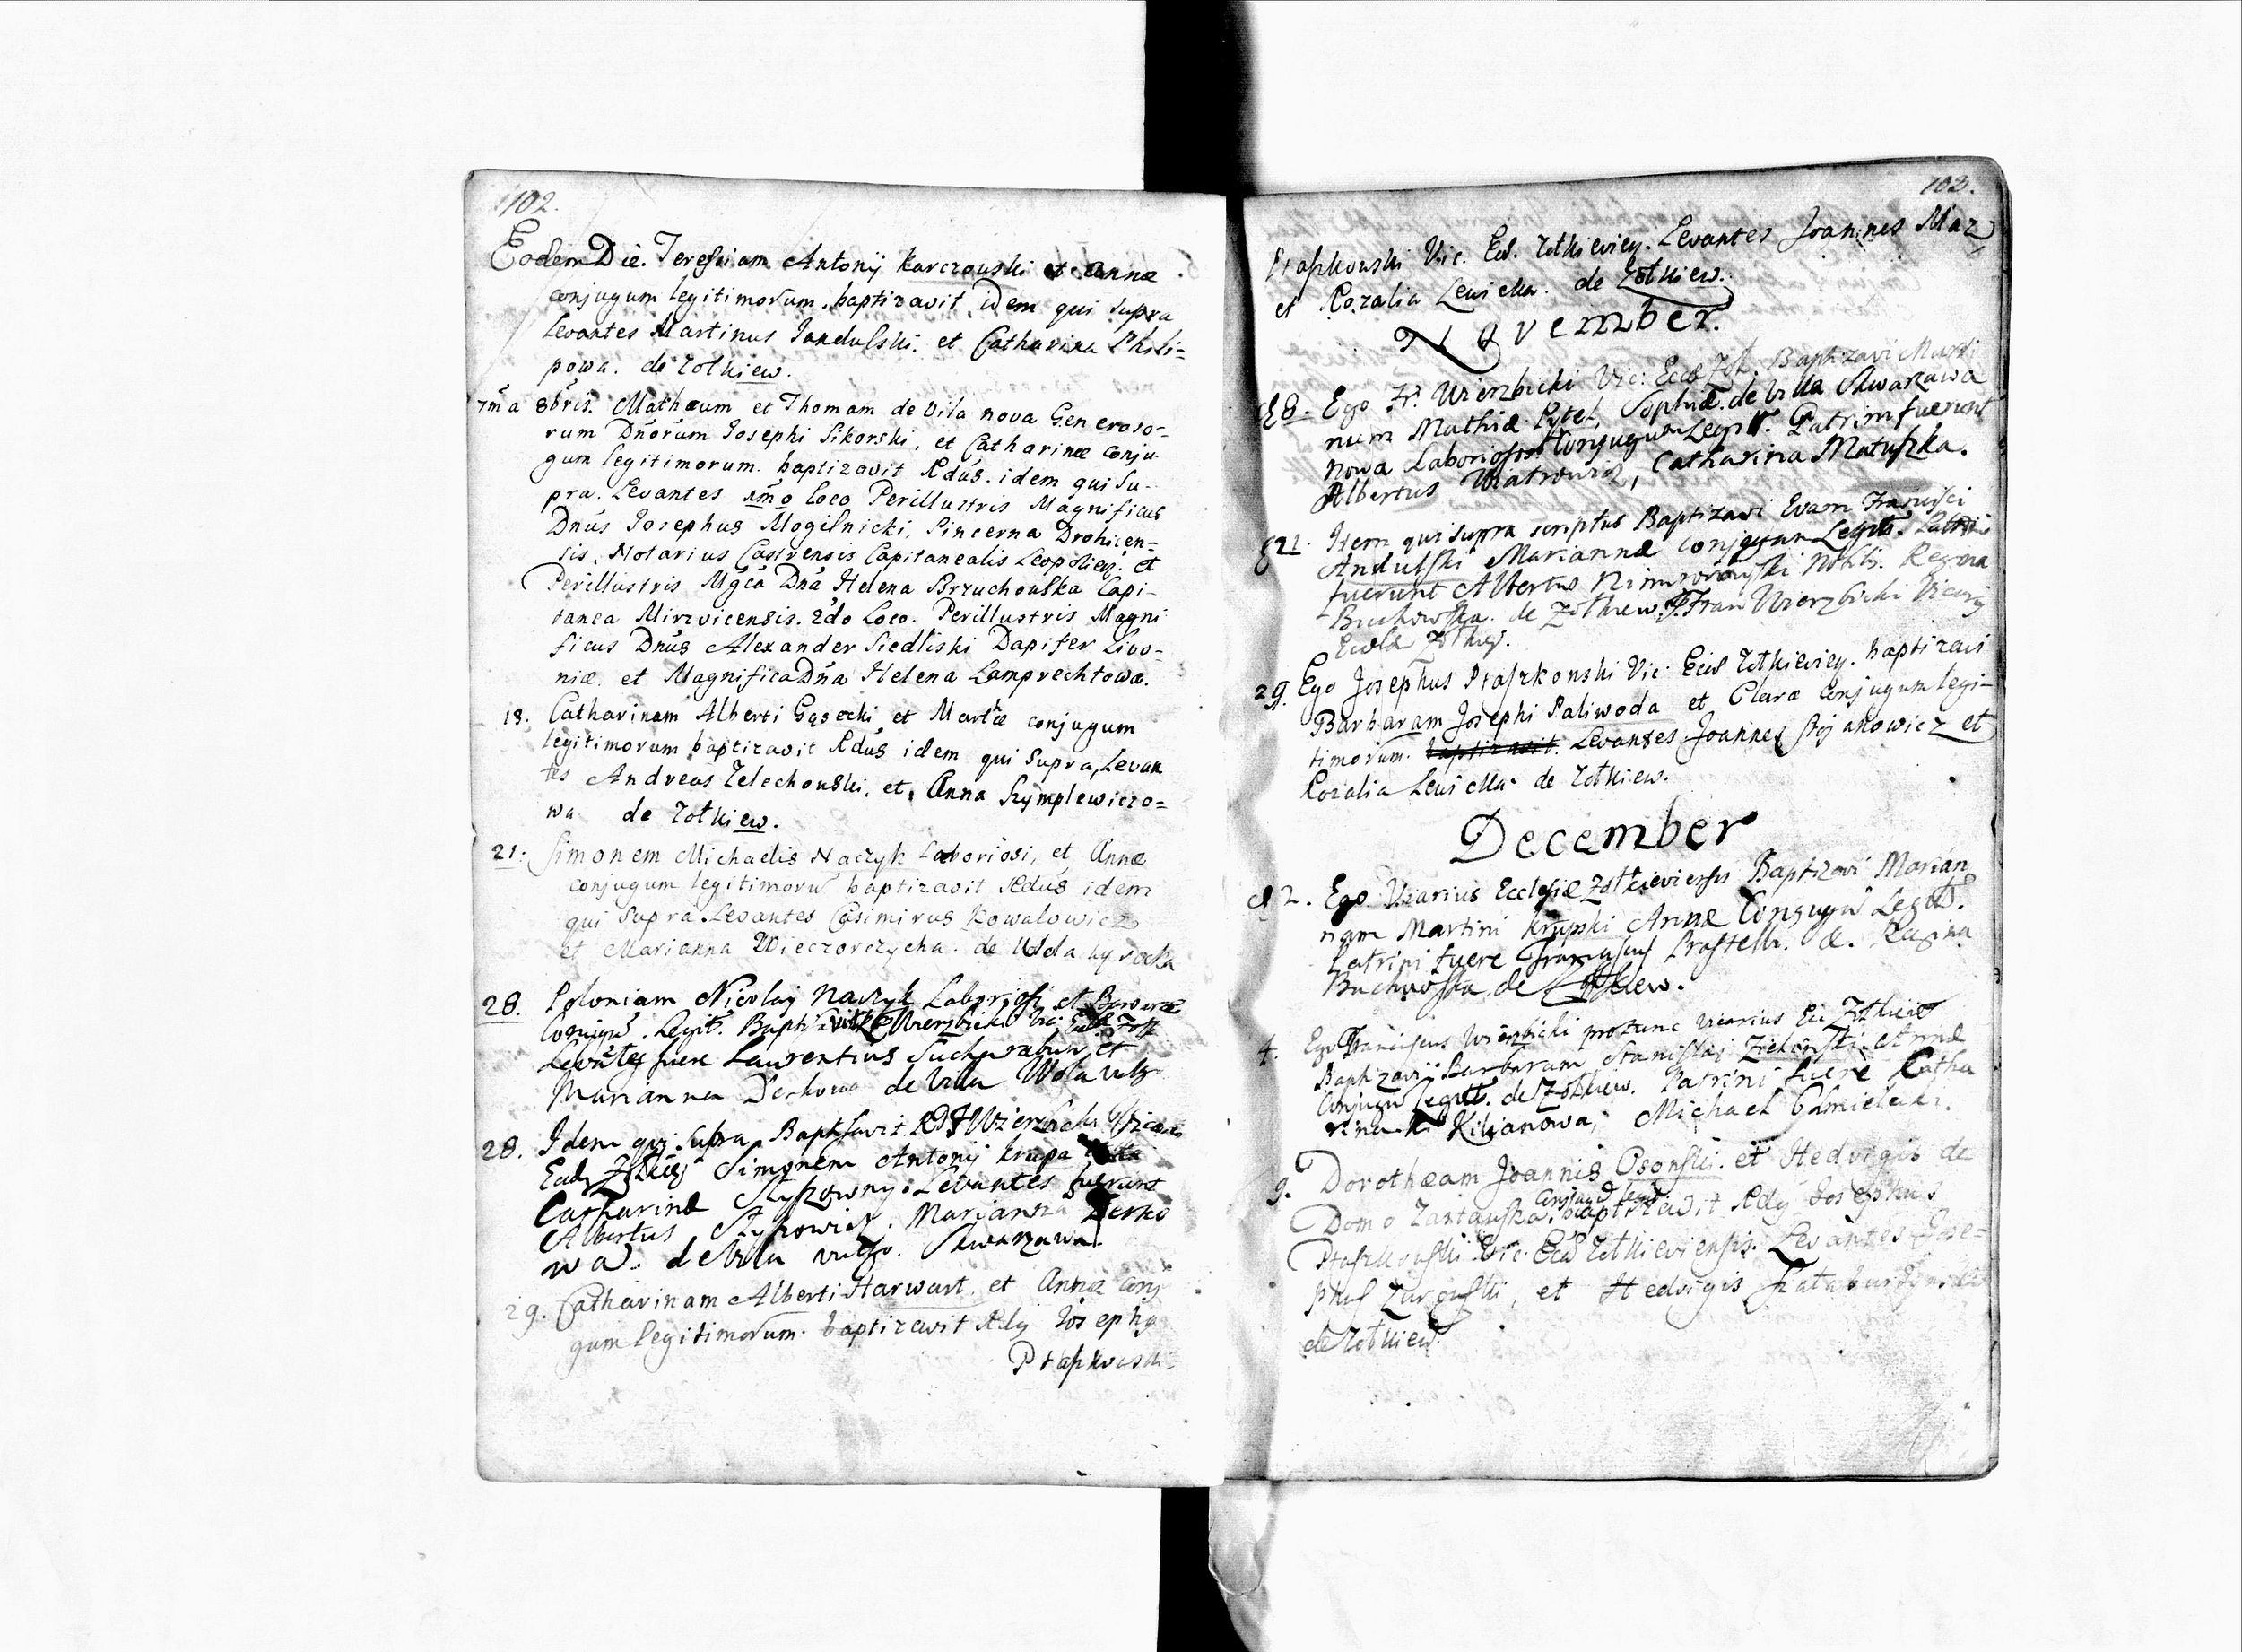 102.
Eodem Die. Teresiam Antonij Karczouski et Annæ
conjugum legitimorum. baptizavit idem qui supra
Levantes Martinus Jandulski. et Catharina Phili=
powa. de Zołkiew.
7ma 8bris. Mathæum et Thomam de Vila nova Generoso-
rum Dnorum Josephi Sikorski, et Catharinæ conju-
gum legitimorum. baptizavit Rdus. idem qui su-
pra. Levantes 1mo loco Perillustris Magnificus
Dnus Josephus Mogilnicki, Pincerna Drohicen=
sis, Notarius Castrensis Capitanealis Leopolien: et
Perillustris Mgca Dna Helena Brzuchouska Capi-
tanea Mirzvicensis. 2do Loco. Perillustris Magni
ficus Dnus Alexander Siedliski Dapifer Livo-
niæ. et Magnifica Dna Helena Lamprechtowa.
18. Catharinam Alberti Gąsecki et Marthæ conjugum
legitimorum baptizavit Rdus idem qui supra, Levan
tes Andreas Zelechouski, et Anna Szymplewiczo=
wa de Zołkiew.
21. Simonem Michaelis Naczyk Laboriosi, et Annæ
conjugum legitimorũ baptizavit Rdus idem
qui supra. Levantes Casimirus Kowalowicz
et Marianna Wieczorczycha. de
28. Poloniam Nicolaj Naczyk Laboriosi et Barbaræ
Conjugũ. Legit. Wierzbicki Vic:
Levantes fuere Laurentius et
Marianna Derkowa de Villa Wola
28. Idem qui supra Baptisavit RD F Wierzbicki
Simonem Antonij Krupa
Catharinæ Levantes fuerunt
Albertus Marianna Derko
wa. de Villa vulgo. Skwarzawa.
29. Catharinam Alberti Harwart. et Annæ conj
gum legitimorum. baptizavit Rdy Josephy
Ptaszkouski
103.
Ptaszkouski Vic. Ecl. Zołkieviey. Levantes Joannes Maz
et Rozalia Lewicka. de Zołkiew.
November.
8. Ego Fr. Wierzbicki Vic: Eccæ Zoł. Baptizavi Marti
num Mathiæ Pytel, Sophiæ. de Villa Skwarzawa
nowa Laborioso: Conjugum Legitt. Patrini fuerunt
Albertus Wiatrowicz, Catharina Matuszka.
21. Item qui supra scriptus Baptizavi Evam Francisci
Andulski Mariannæ Conjugum Legitt. Patrini
fuerunt Albertus Nobilis. Regina
Buchowska. de Zołkiew. F. Fran Wierzbicki Vicarj
29. Ego Josephus Ptaszkouski Vic: Eccl Zołkieviey. baptizavi
Barbaram Josephi Paliwoda et Claræ conjugum legi-
timorum. baptizavit. Levantes Joannes Stojanowicz et
Rozalia Lewicka de Zołkiew.
December
2. Ego Vicarius Ecclesiæ Zołkieviensis Baptizavi Marian
nam Martini Krupski Annæ Conjugũ Legitt.
Patrini fuere Franciscus &. Regina
Buchowska de Zołkiew.
4. Ego Franciscus Wierzbicki protunc Vicarius Ecc Zołkiew
Baptizavi Barbaram Stanislaj Zielonski. Annæ
Conjugũ Legitt. de Zołkiew. Patrini fuere Catha
rina Kilianowa, Michael Chmielecki.
9. Dorothæam Joannis Osonski. et Hedvigis de
conjugũ legit
Domo baptizavit Rdy Josephus
Ptaszkouski Vic: Eccl Zołkieviensis. Levantes Jose=
phus Zurouski, et Hedvigis
de Zołkiew.